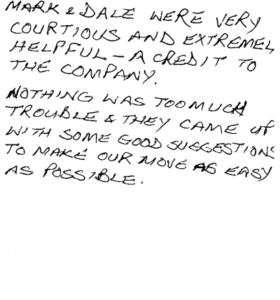 MARK & DALE WERE VERY
COURTIOUS AND EXTREMEL
HELPFUL - A CREDIT TO
THE COMPANY.
NOTHING WAS TOO MUCH
TROUBLE & THEY CAME UP
WITH SOME GOOD SUGGESTIONS
TO MAKE OUR MOVE AS EASY
AS POSSIBLE.